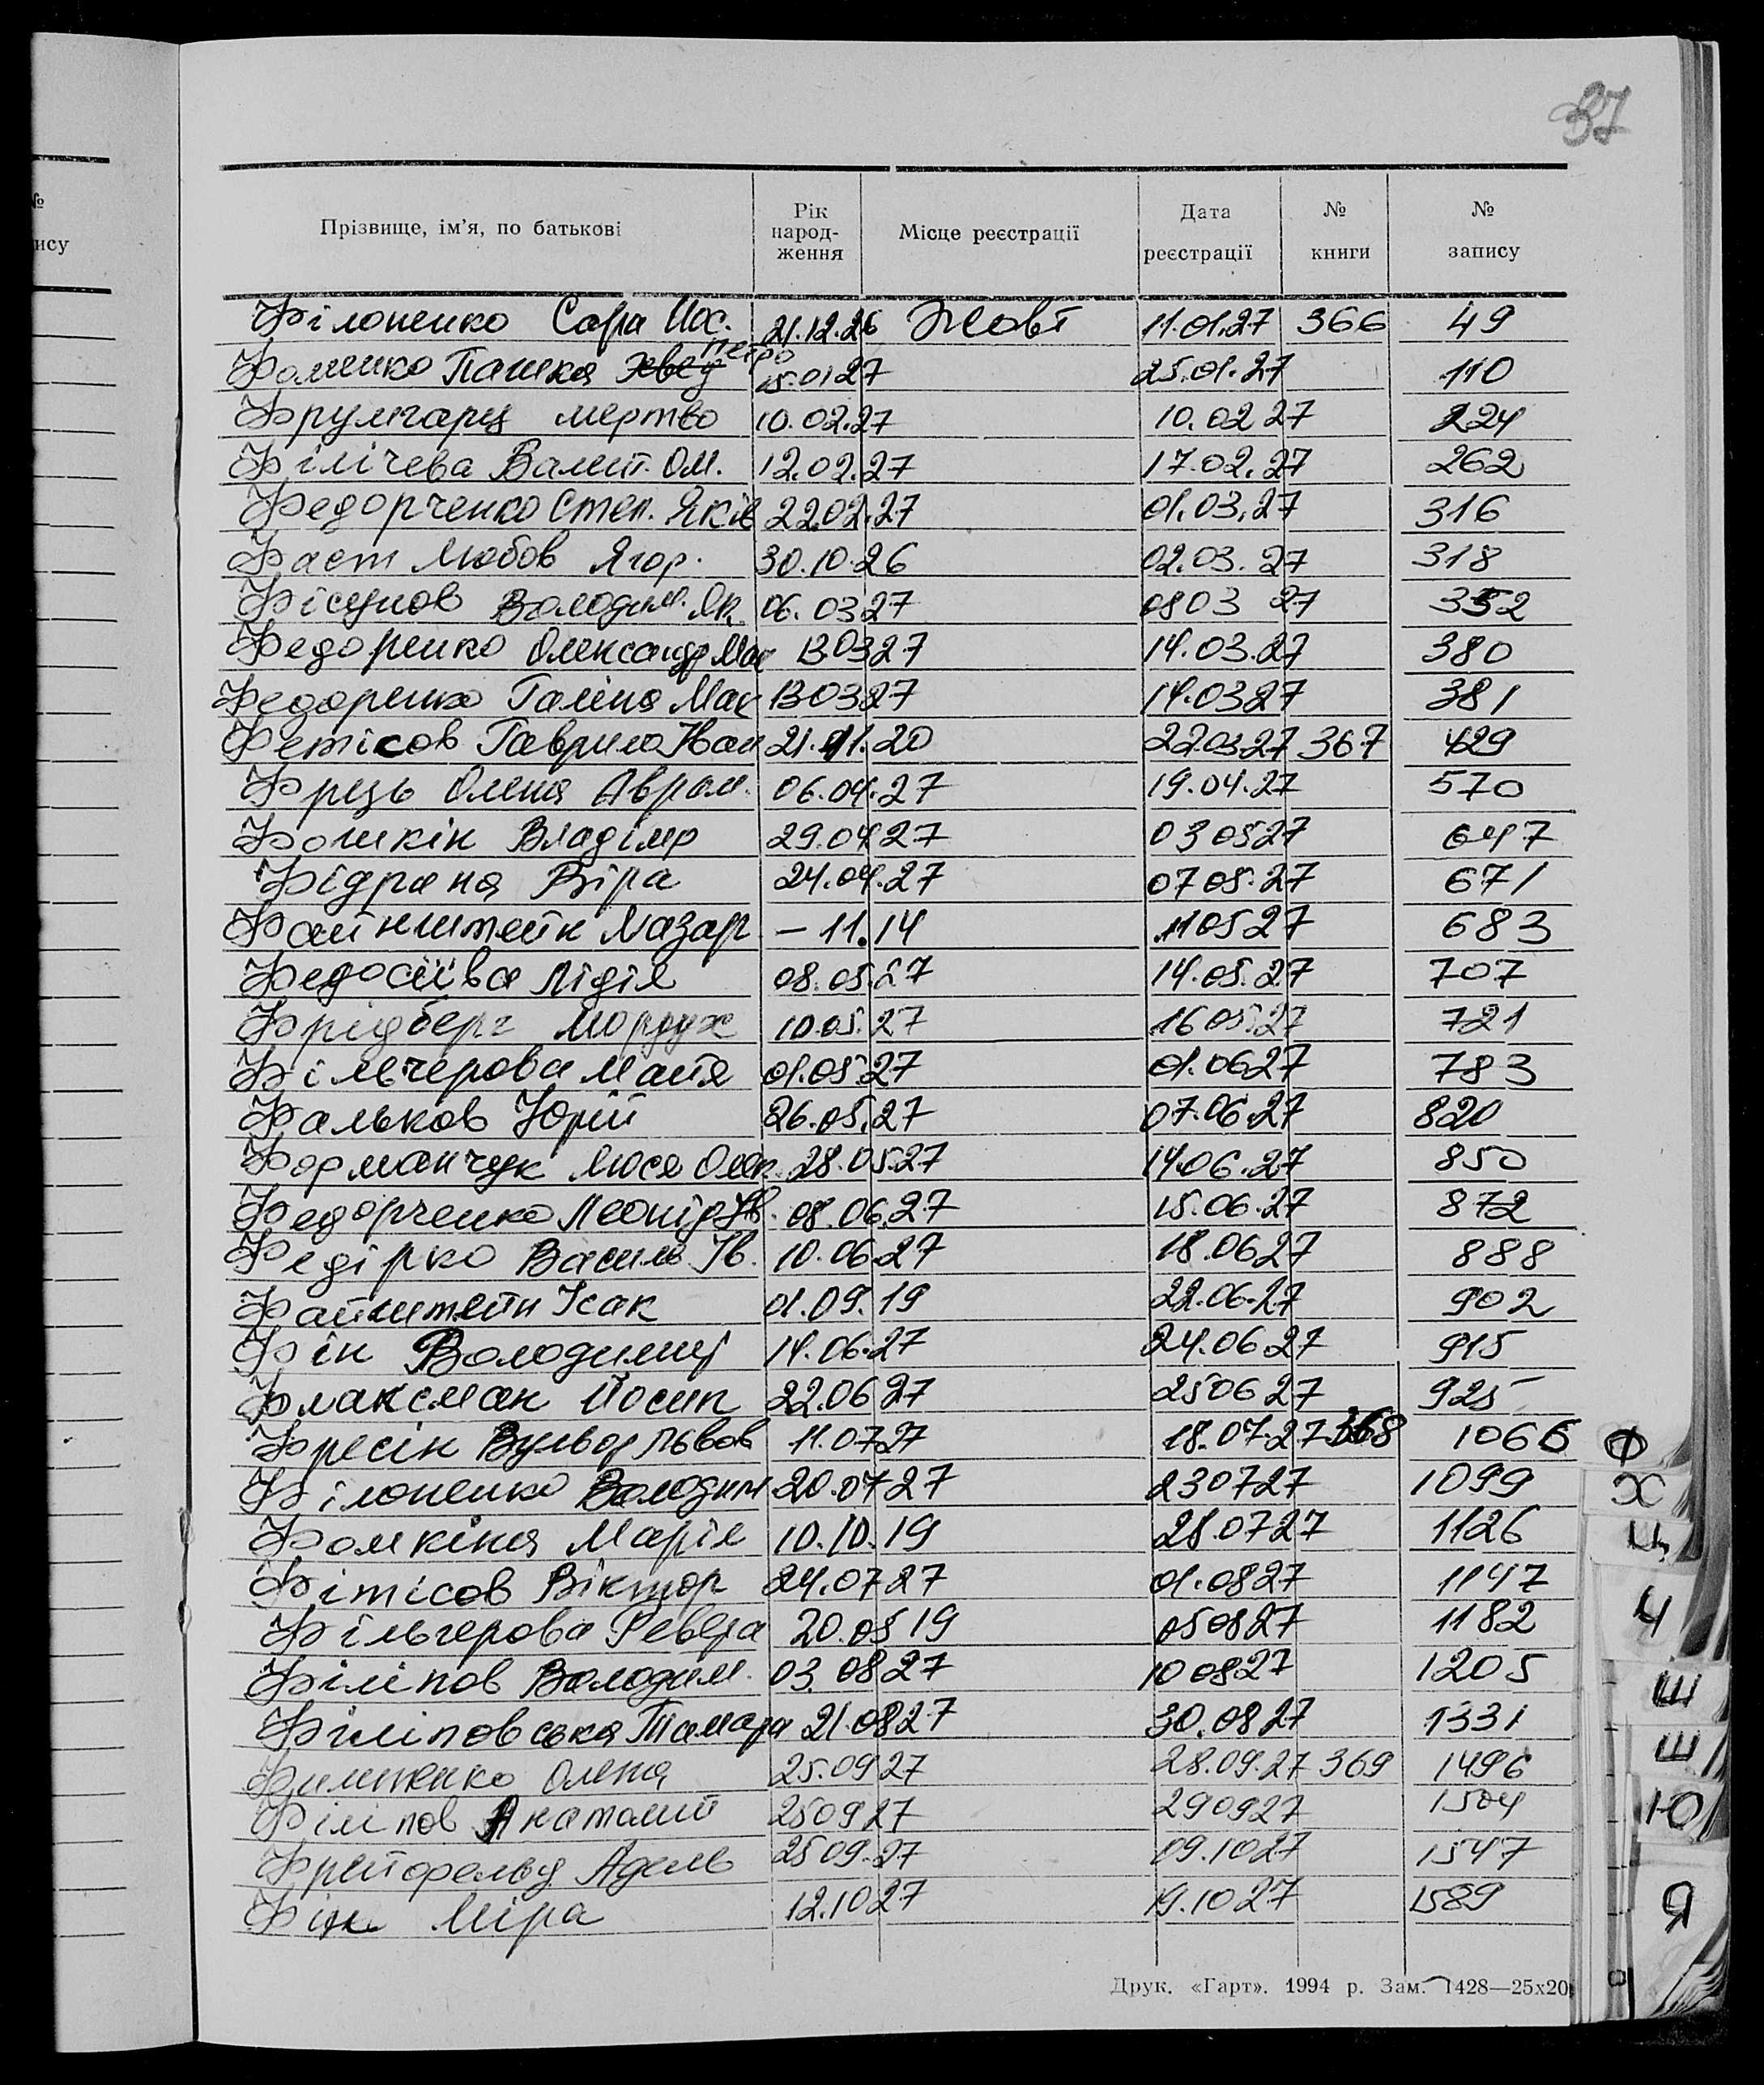 37
№
ису
Прізвище, ім'я, по батькові Рік народ- ження Місце реєстрації Дата реєстрації № книги № запису
Філоненко Сара Йос. 21.12.26 Жовт 11.01.27 366 49
Фоменко Пашка Петро 15.01.27 25.01.27 110
Фрумгарц мертво 10.02.27 10.02 27 224
Філічева Валент. Ом. 12.02.27 17.02.27 262
Федорченко Степ. Яків 22.02.27 01.03.27 316
Фаст Любов Ягор. 30.10.26 02.03.27 318
Фісунов Володим. Як. 06.03 27 08 03 27 352
Федоренко Олександр Мак 13 03 27 14.03.27 380
Федоренко Галина Мак 13 03 27 14.03 27 381
Фетісов Гаврило Іван 21.11.20 22.03.27 367 429
Фрець Олена Аврам. 06.04.27 19.04.27 570
Фошкін Владімр 29.04 27 03 05 27 647
Фідрана Віра 24.04.27 07 05.27 671
Файнштейн Лазар – 11.14 11 05 27 683
Федосіїва Лідія 08.05.27 14.05.27 707
Фрідберг Мордух 10.05.27 16 05.27 721
Фільчерова Майя 01.05.27 01.06 27 783
Фальков Юрій 26.05.27 07.06.27 820
Форманчук Люся Олек. 28.05.27 14.06.27 850
Федорченко Леонід Ів. 08.06.27 15.06.27 872
Федірко Василь Ів. 10.06.27 18.06 27 888
Файнштейн Ісак 01.09.19 22.06.27 902
Фін Володимир 14.06.27 24.06 27 915
Флаксман Йосип 22.06 27 25 06 27 925
Фресін Вульф Львов 11.07 27 18.07.27 368 1066
Філоненко Володим 20.07 27 23 07 27 1099
Фомкіна Марія 10.10.19 28.07 27 1126
Фітісов Віктор 24.07 27 01.08 27 1147
Фільгерова Ревера 20.05 19 05 08 27 1182
Філіпов Володим. 03.08 27 10 08 27 1205
Філіповська Тамара 21.08 27 30.08 27 1331
Филипенко Олена 25.09 27 28.09.27 369 1496
Філіпов Анатолий 25 09 27 29 09 27 1504
Фрейфельд Адель 25 09.27 09.10 27 1547
Фін Міра 12.10 27 19.10 27 1589
Друк. «Гарт». 1994 р. Зам. 1428—25х20
Ф
Х
Ц
Ч
Ш
Щ
Ю
Я